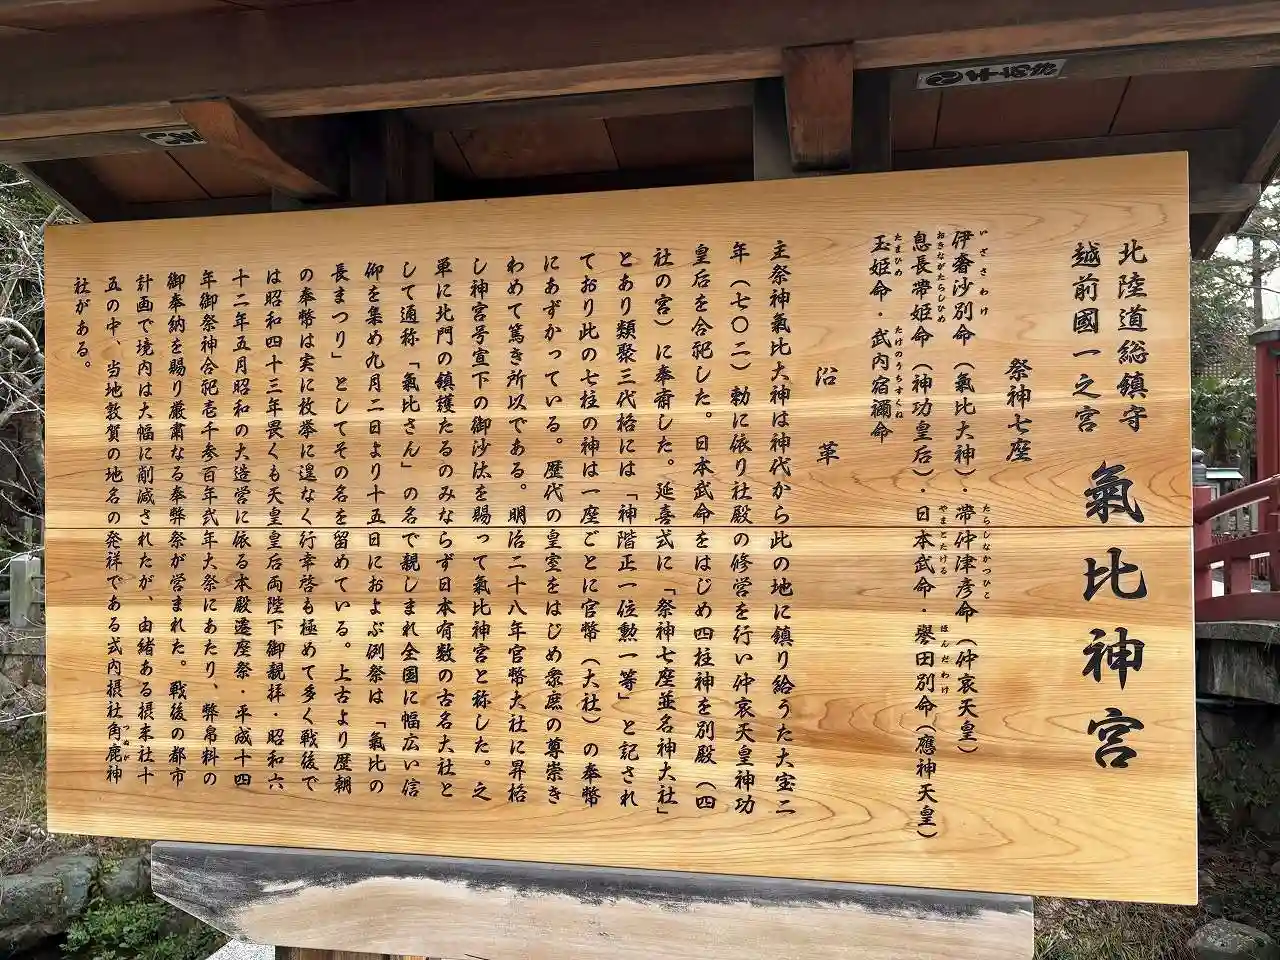 北陸道総鎮守
越前國一之宮
氣比神宮
祭神七座
伊奢沙別命（氣比大神）・帯仲津彦命（仲哀天皇）
いざさわけ
たらしなかつひこ
息長帯姫命（神功皇后）・日本武命・譽田別命（應神天皇）
おきながたらしひめ
やまとたける
ほんだわけ
玉姫命・武内宿禰命
たまひめ
たけのうちすくね
沿革
主祭神氣比大神は神代から此の地に鎮り給うた大宝二
年（七〇二）勅に依り社殿の修営を行い仲哀天皇神功
皇后を合祀した。日本武命をはじめ四柱神を別殿（四
社の宮）に奉斎した。延喜式に「祭神七座並名神大社」
とあり類聚三代格には「神階正一位勲一等」と記され
ており此の七柱の神は一座ごとに官幣（大社）の奉幣
にあずかっている。歴代の皇室をはじめ衆庶の尊崇き
わめて篤き所以である。明治二十八年官幣大社に昇格
し神宮号宣下の御沙汰を賜って氣比神宮と称した。之
単に北門の鎮護たるのみならず日本有数の古名大社と
して通称「氣比さん」の名で親しまれ全国に幅広い信
仰を集め九月二日より十五日におよぶ例祭は「氣比の
長まつり」としてその名を留めている。上古より歴朝
の奉幣は実に枚挙に遑なく行幸啓も極めて多く戦後で
は昭和四十三年畏くも天皇皇后両陛下御親拝・昭和六
十二年五月昭和の大造営に依る本殿遷座祭・平成十四
年御祭神合祀壱千参百年式年大祭にあたり、弊帛料の
御奉納を賜り厳粛なる奉弊祭が営まれた。戦後の都市
計画で境内は大幅に削減されたが、由緒ある摂末社十
五の中、当地敦賀の地名の発祥である式内摂社角鹿神
つぬが
社がある。